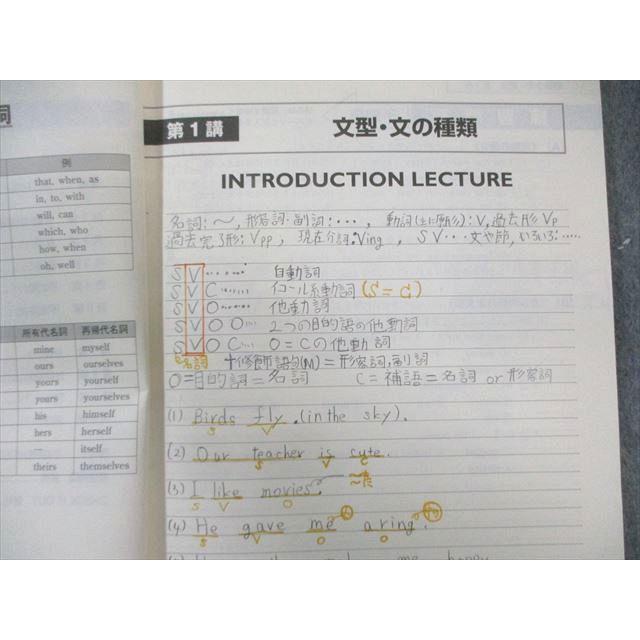 詞
例
that, when, as
in, to, with
will, can
which, who
how, when
oh, well
所有代名詞 再帰代名詞
mine myself
ours ourselves
yours yourself
yours yourselves
his himself
hers herself
— itself
theirs themselves
第1講 文型・文の種類
INTRODUCTION LECTURE
名詞:〜, 形容詞・副詞:・・・, 動詞(主に原形):V, 過去形 Vp
過去完了形:Vpp, 現在分詞:Ving, SV・・・文や節, いろいろ:・・・・・
SV・・・・・・ 自動詞
SVC・・・・・・ イコール系動詞(S=C)
SVO・・・・・・ 他動詞
SVOO・・・ 2つの目的語の他動詞
SVOC・・・ O=Cの他動詞
名詞 +修飾語句(M)=形容詞,副詞
O=目的詞=名詞 C=補語=名詞 or 形容詞
(1) Birds fly.(in the sky).
S V
(2) Our teacher is cute.
S V C
(3) I like movies.
S V O
(4) He gave me a ring.
S V O O
me happy